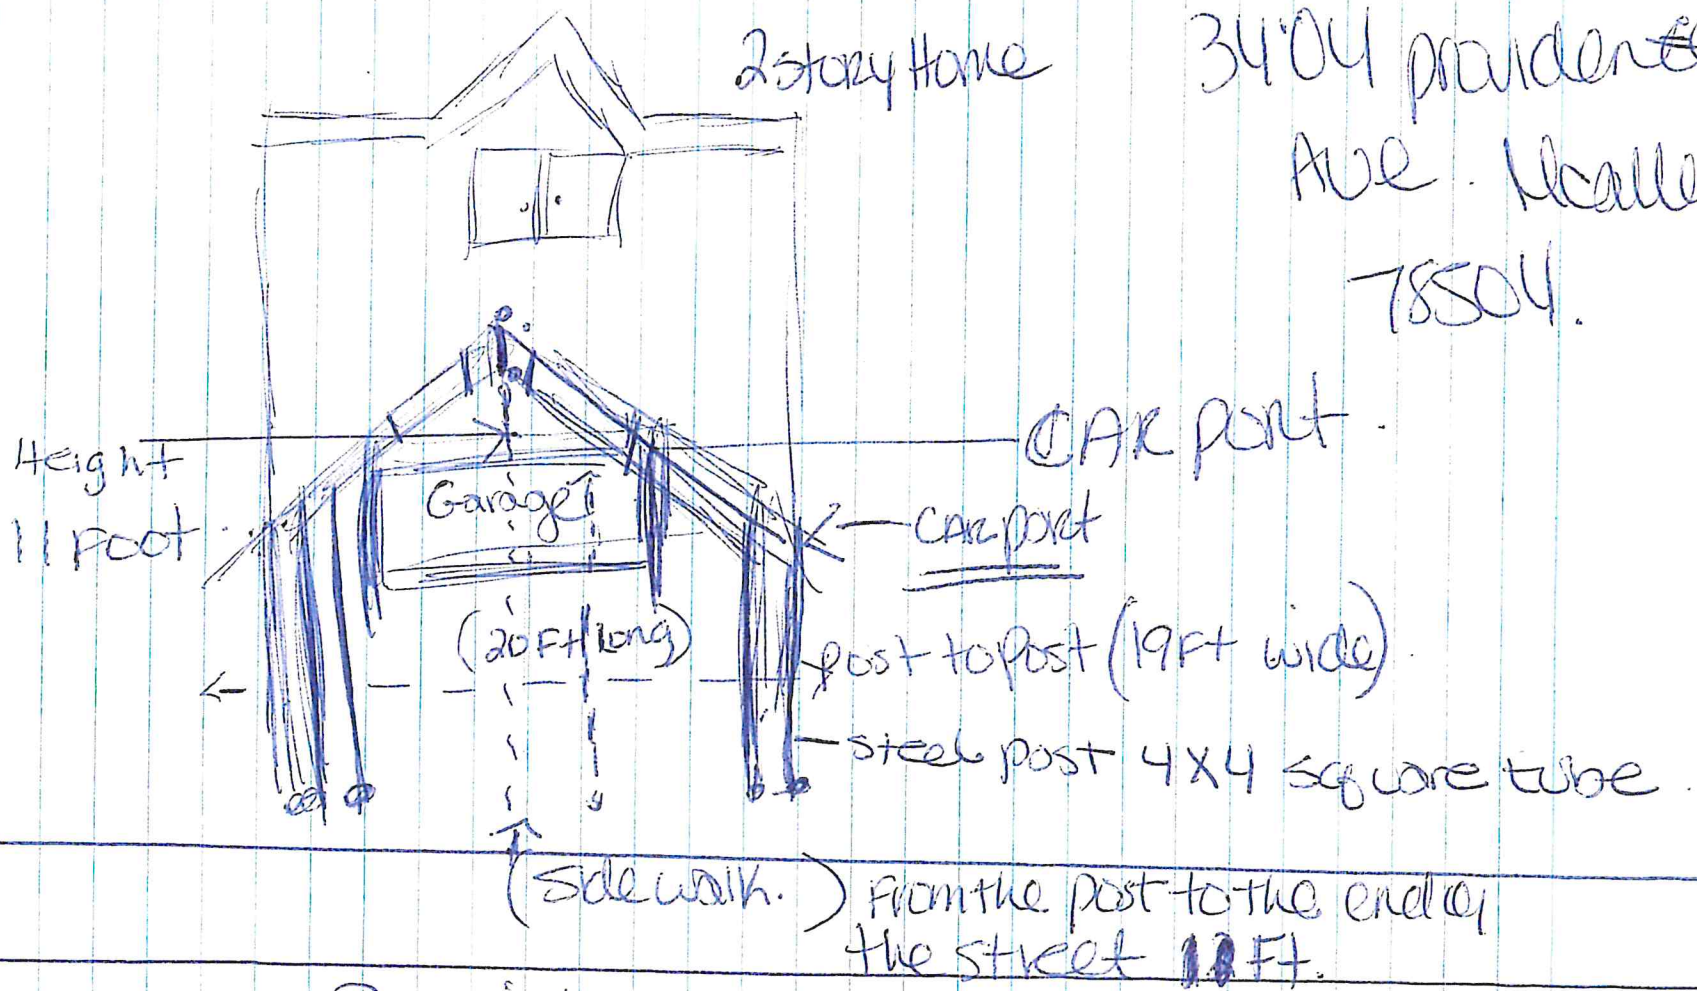 2 story Home
3404 providen
Ave. Mcalle
78504.
CAR port.
Height
11 Foot
Garage
CARport
(20Ft Long)
post to post (19Ft wide)
steel post 4x4 square tube.
(sidewalk.) From the post to the end of
the street 11 Ft.